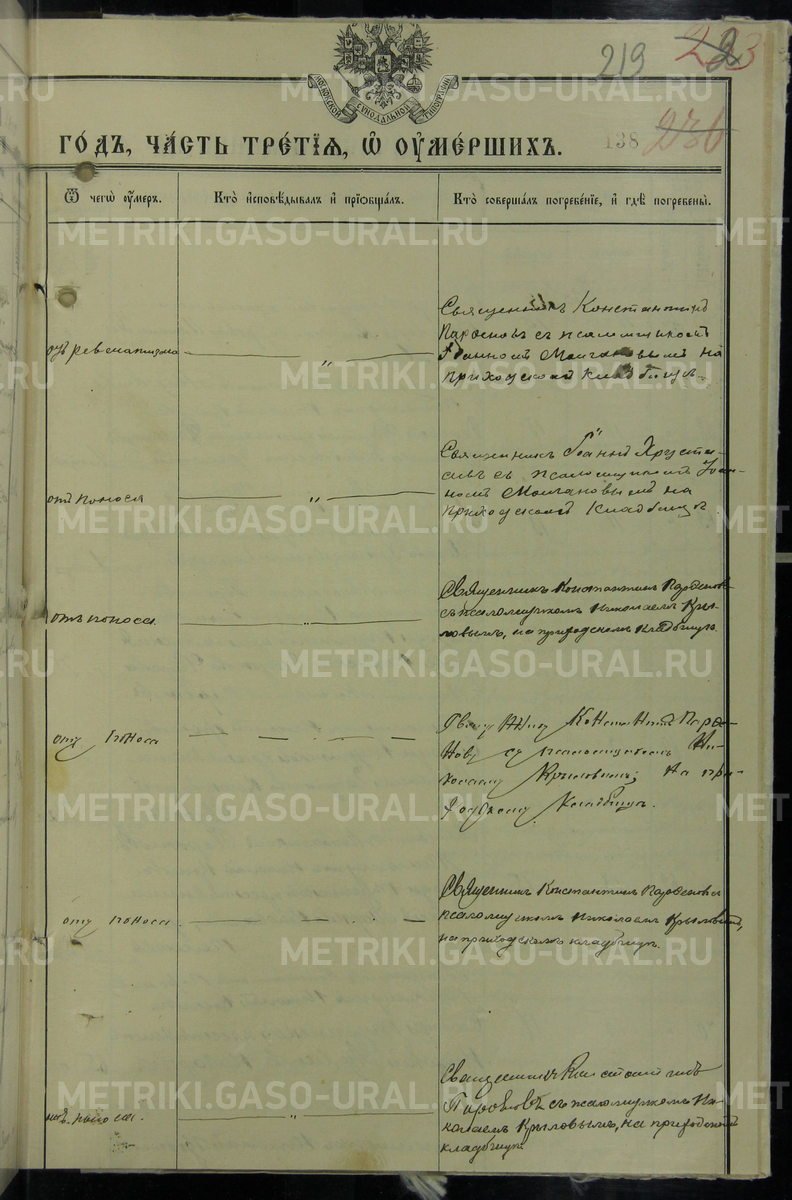 219 223
МОСКОВСКОЙ СѴНОДАЛЬНОЙ ТИПОГРАФІИ
ГО́ДЪ, ЧА́СТЬ ТРЕ́ТІѦ, Ѽ ОУ҆МЕ́РШИХЪ.
138 236
Ѿ чегѡ̀ оу҆́меръ.
Кто̀ и҆сповѣ́дывалъ и҆ прїѡбща́лъ.
Кто̀ соверша́лъ погребе́нїе, и҆ гдѣ̀ погребены̀.
METRIKI.GASO-URAL.RU
отъ ревматизма
„
Священникъ Константинъ
Парѳеновъ съ псаломщикомъ
Іоанномъ Молчановымъ на
приходскомъ кладбищѣ.
отъ поноса
„
Священникъ Іоаннъ Хруста-
левъ съ псаломщикомъ Іоан-
номъ Молчановымъ на
приходскомъ кладбищѣ.
отъ поноса.
„
Священникъ Константинъ Парѳеновъ
съ псаломщикомъ Николаемъ Кры-
ловымъ, на приходскомъ кладбищѣ.
отъ поноса
Священникъ Констант. Парѳе-
новъ съ псаломщикомъ Ни-
колаемъ Крыловымъ; на при-
ходскомъ кладбищѣ.
отъ поноса
Священникъ Константинъ Парѳеновъ съ
псаломщикомъ Николаемъ Крыловымъ,
на приходскомъ кладбищѣ.
отъ поноса.
„
Священникъ Константинъ
Парѳеновъ съ псаломщикомъ Ни-
колаемъ Крыловымъ, на приходскомъ
кладбищѣ.